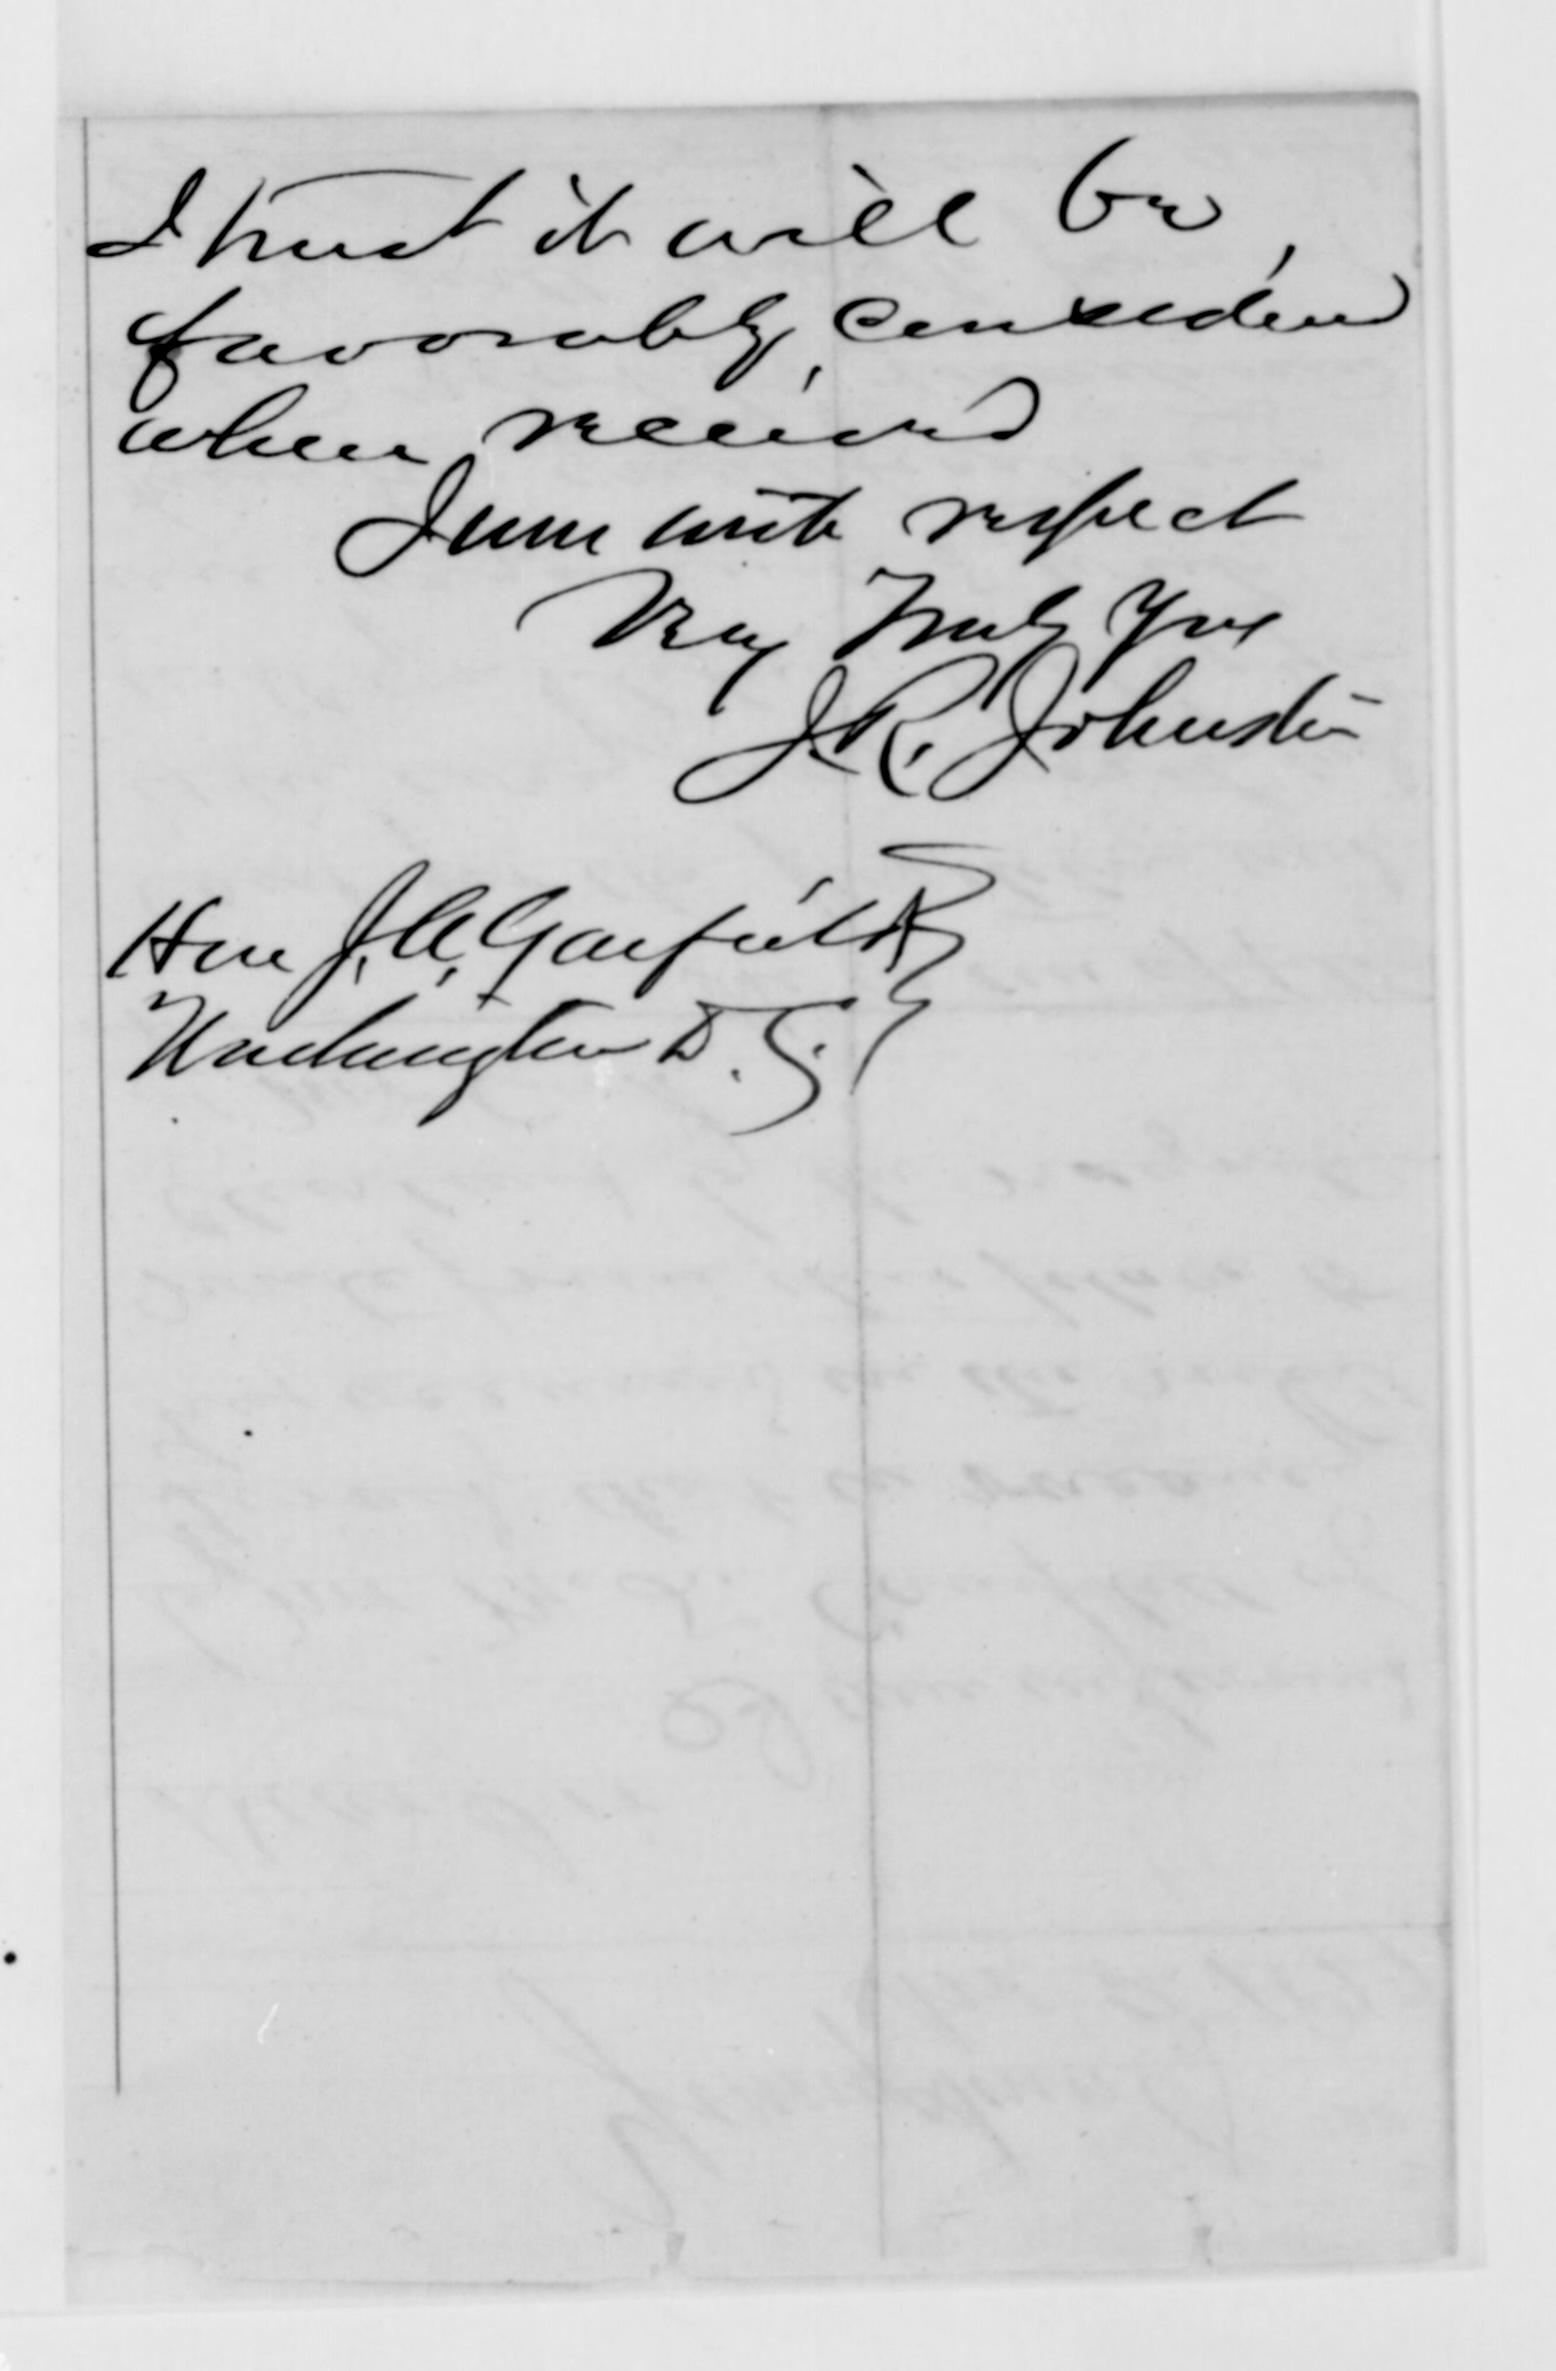 I trust it will be
favorably, considered
when received
I am with respect
Very Truly Yrs
J. R. Johnston
Hon J. A. Garfield
Washington D. C.